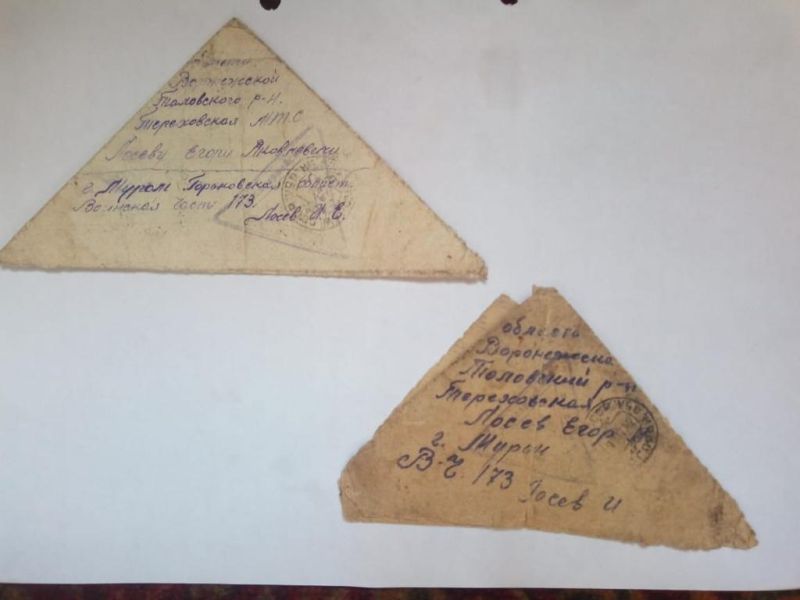 области
Воронежской
Таловского р-н.
Тереховская МТС
Лосеву Егору Яковлевичу
г. Муром Горьковская област.
Воинская части 173.
Лосев И. Е.
область
Воронежска
Таловский р-н
Тереховская
Лосев Егор
г. Муром
В-Ч. 173
Лосев И